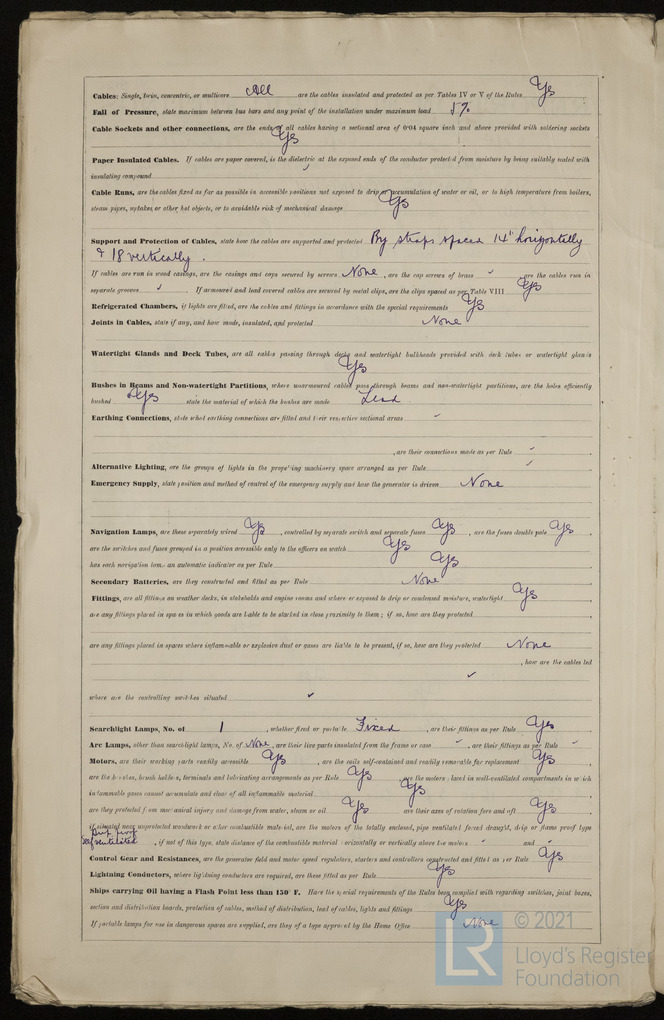 Cables: Single, twin, concentric, or multicore All are the cables insulated and protected as per Tables IV or V of the Rules Yes
Fall of Pressure, state maximum between bus bars and any point of the installation under maximum load 5%
Cable Sockets and other connections, are the ends of all cables having a sectional area of 0·04 square inch and above provided with soldering sockets
Yes
Paper Insulated Cables. If cables are paper covered, is the dielectric at the exposed ends of the conductor protected from moisture by being suitably sealed with
insulating compound
Cable Runs, are the cables fixed as far as possible in accessible positions not exposed to drip or accumulation of water or oil, or to high temperature from boilers,
steam pipes, uptakes or other hot objects, or to avoidable risk of mechanical damage Yes
Support and Protection of Cables, state how the cables are supported and protected By straps spaced 14" horizontally
& 18 vertically.
If cables are run in wood casings, are the casings and caps secured by screws None, are the cap screws of brass ✓, are the cables run in
separate grooves ✓. If armoured and lead covered cables are secured by metal clips, are the clips spaced as per Table VIII Yes
Refrigerated Chambers, if lights are fitted, are the cables and fittings in accordance with the special requirements Yes
Joints in Cables, state if any, and how made, insulated, and protected None
Watertight Glands and Deck Tubes, are all cables passing through decks and watertight bulkheads provided with deck tubes or watertight glands
Yes
Bushes in Beams and Non-watertight Partitions, where unarmoured cables pass through beams and non-watertight partitions, are the holes efficiently
bushed Yes state the material of which the bushes are made Lead
Earthing Connections, state what earthing connections are fitted and their respective sectional areas ✓
, are their connections made as per Rule ✓
Alternative Lighting, are the groups of lights in the propelling machinery space arranged as per Rule ✓
Emergency Supply, state position and method of control of the emergency supply and how the generator is driven None
Navigation Lamps, are these separately wired Yes, controlled by separate switch and separate fuses Yes, are the fuses double pole Yes,
are the switches and fuses grouped in a position accessible only to the officers on watch Yes
has each navigation lamp an automatic indicator as per Rule Yes
Secondary Batteries, are they constructed and fitted as per Rule None
Fittings, are all fittings on weather decks, in stokeholds and engine rooms and where exposed to drip or condensed moisture, watertight Yes
are any fittings placed in spaces in which goods are liable to be stacked in close proximity to them; if so, how are they protected
are any fittings placed in spaces where inflammable or explosive dust or gases are liable to be present, if so, how are they protected None
, how are the cables led
✓
where are the controlling switches situated ✓
Searchlight Lamps, No. of 1, whether fixed or portable Fixed, are their fittings as per Rule Yes
Arc Lamps, other than searchlight lamps, No. of None, are their live parts insulated from the frame or case ✓, are their fittings as per Rule ✓
Motors, are their working parts readily accessible Yes, are the coils self-contained and readily removable for replacement Yes
are the brushes, brush holders, terminals and lubricating arrangements as per Rule Yes, are the motors placed in well-ventilated compartments in which
inflammable gases cannot accumulate and clear of all inflammable material Yes
are they protected from mechanical injury and damage from water, steam or oil Yes are their axes of rotation fore and aft Yes
if situated near unprotected woodwork or other combustible material, are the motors of the totally enclosed, pipe ventilated forced draught, drip or flame proof type
Drip proof
ventilated, if not of this type, state distance of the combustible material horizontally or vertically above the motors ✓ and ✓
Control Gear and Resistances, are the generator field and motor speed regulators, starters and controllers constructed and fitted as per Rule Yes
Lightning Conductors, where lightning conductors are required, are these fitted as per Rule Yes
Ships carrying Oil having a Flash Point less than 150° F. Have the special requirements of the Rules been complied with regarding switches, joint boxes,
section and distribution boards, protection of cables, method of distribution, lead of cables, lights and fittings Yes
If portable lamps for use in dangerous spaces are supplied, are they of a type approved by the Home Office None
LR
© 2021
Lloyd's Register
Foundation